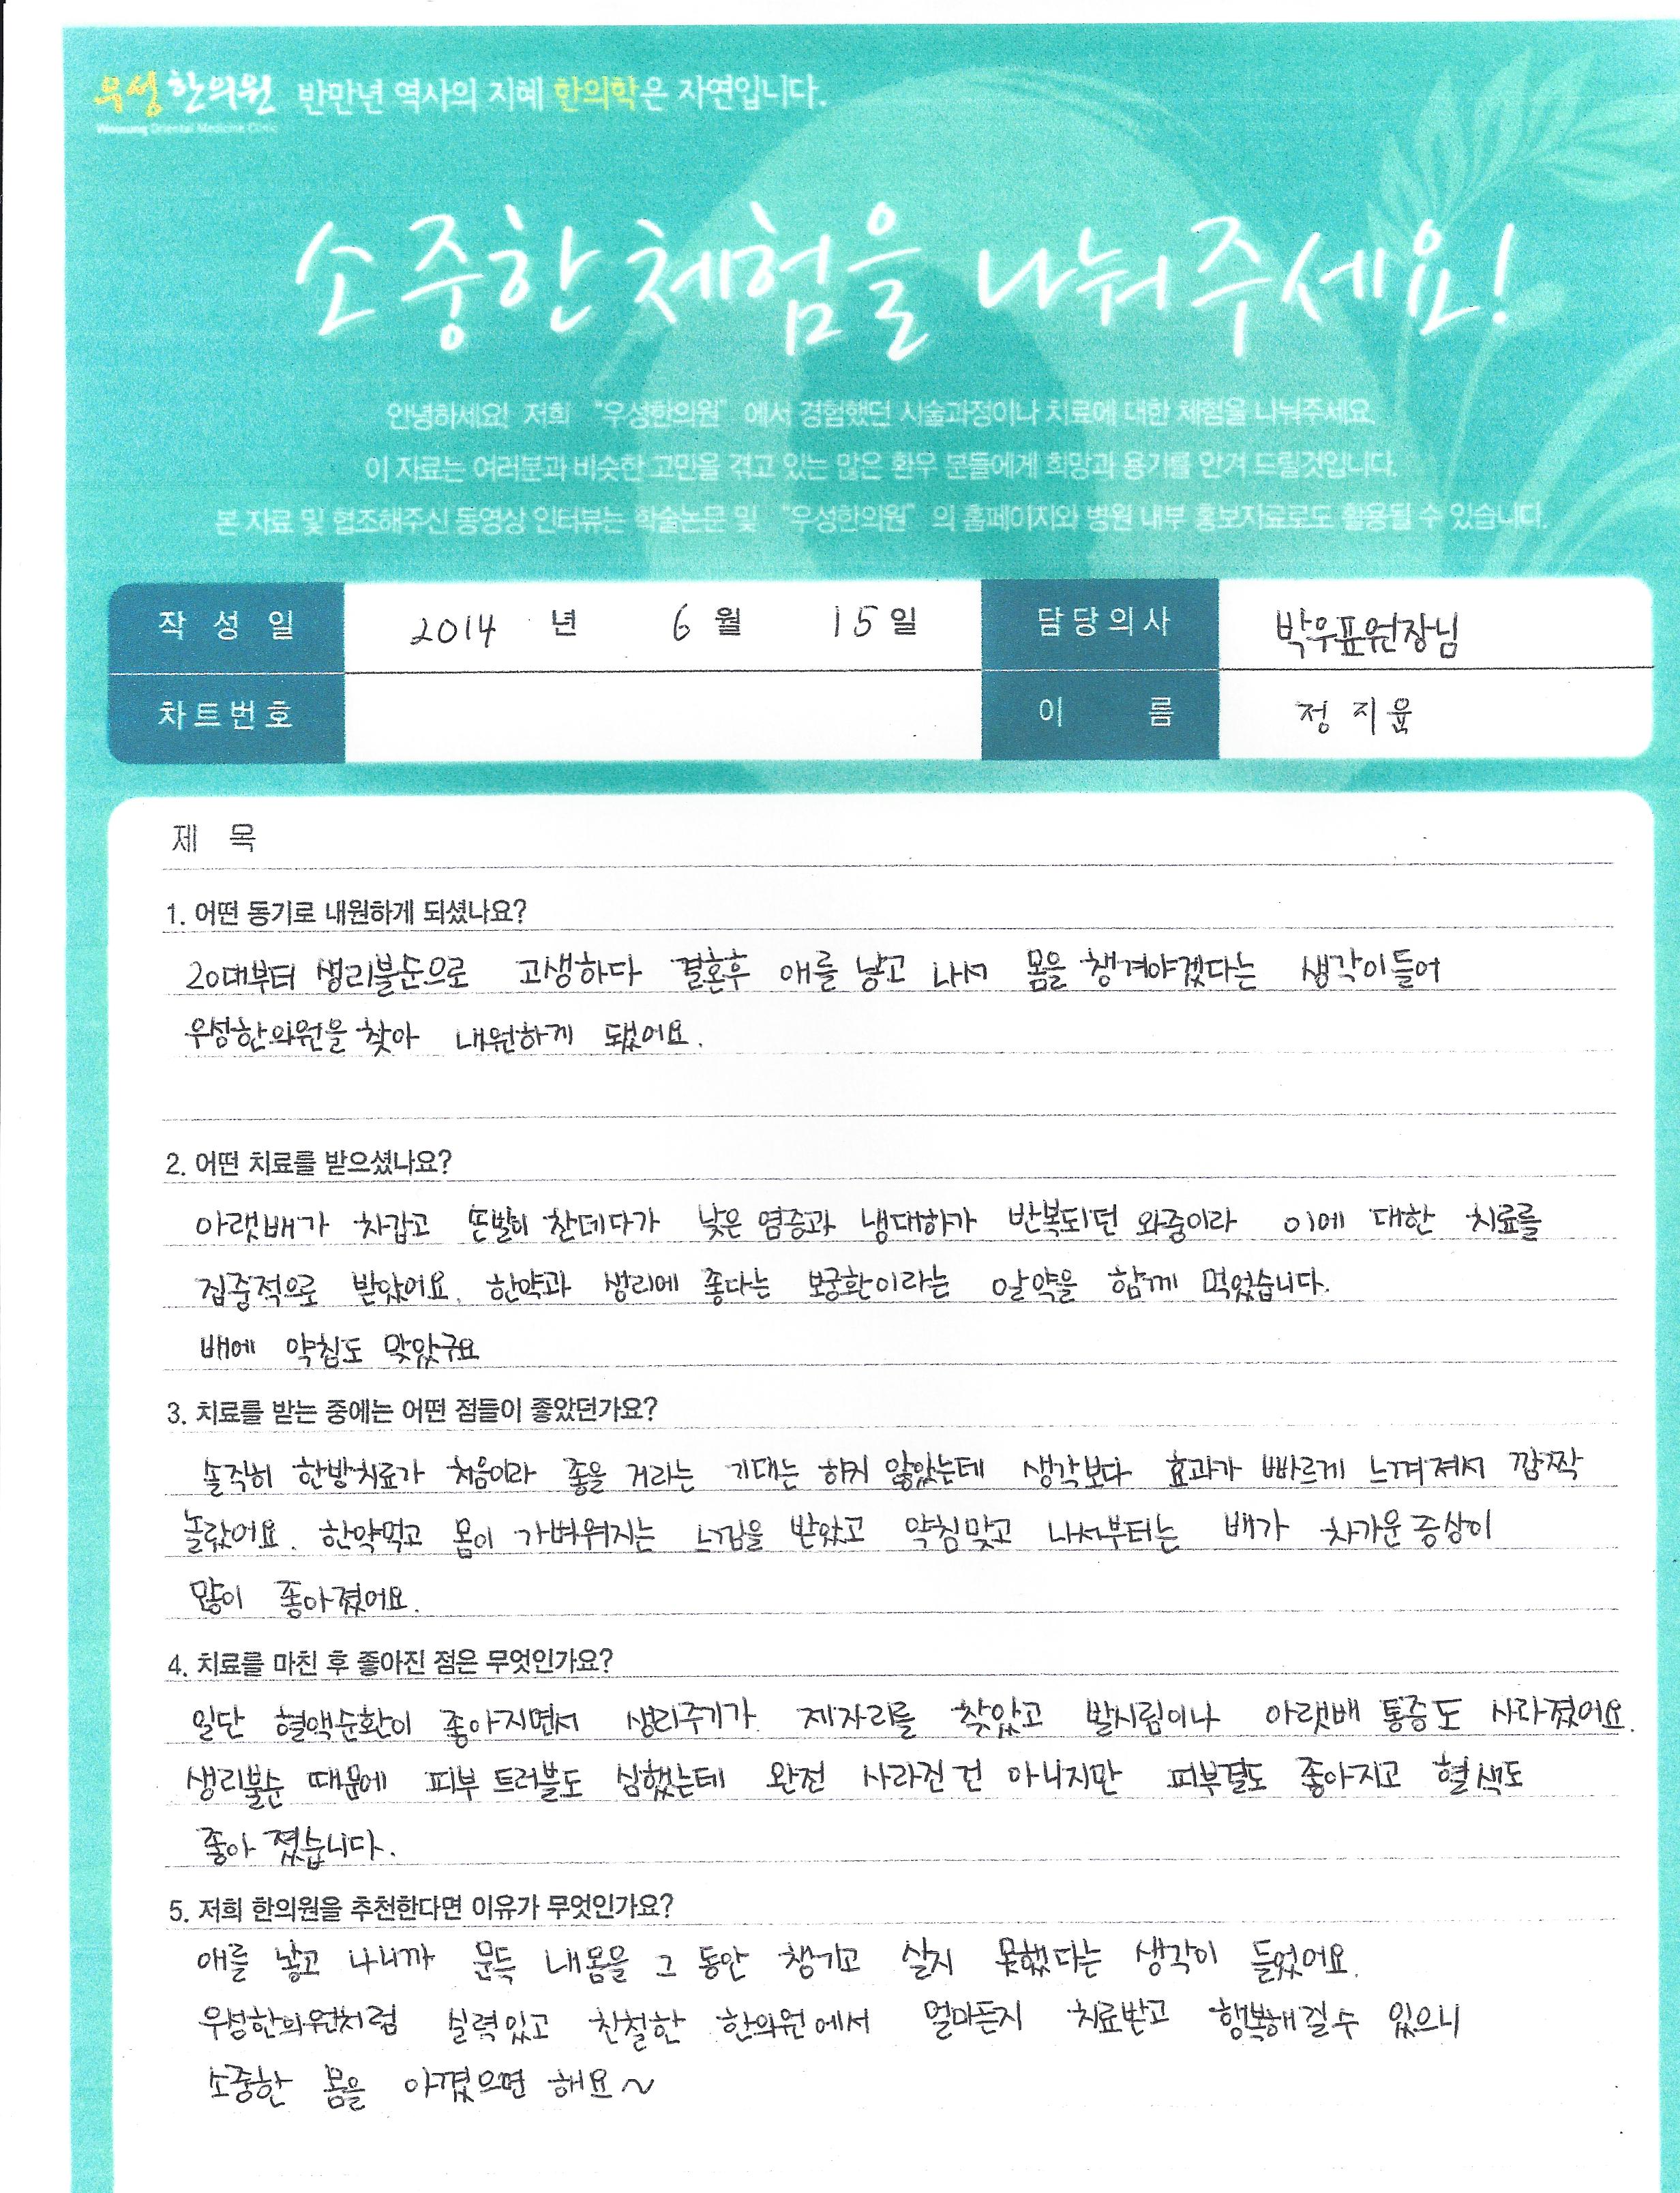 우성한의원 반만년 역사의 지혜 한의학은 자연입니다.
Woosung Oriental Medicine Clinic
소중한 체험을 나눠주세요!
안녕하세요! 저희 "우성한의원" 에서 경험했던 시술과정이나 치료에 대한 체험을 나눠주세요.
이 자료는 여러분과 비슷한 고민을 겪고 있는 많은 환우 분들에게 희망과 용기를 안겨 드릴것입니다.
본 자료 및 협조해주신 동영상 인터뷰는 학술논문 및 "우성한의원" 의 홈페이지와 병원 내부 홍보자료로도 활용될 수 있습니다.
작 성 일 2014 년 6 월 15 일 담당의사 박우표원장님
차트번호 이 름 정 지윤
제 목
1. 어떤 동기로 내원하게 되셨나요?
20대부터 생리불순으로 고생하다 결혼후 애를 낳고 나서 몸을 챙겨야겠다는 생각이들어
우성한의원을 찾아 내원하게 됐어요.
2. 어떤 치료를 받으셨나요?
아랫배가 차갑고 손발이 찬데다가 낮은 염증과 냉대하가 반복되던 와중이라 이에 대한 치료를
집중적으로 받았어요. 한약과 생리에 좋다는 보궁환이라는 알약을 함께 먹었습니다.
배에 약침도 맞았구요
3. 치료를 받는 중에는 어떤 점들이 좋았던가요?
솔직히 한방치료가 처음이라 좋을 거라는 기대는 하지 않았는데 생각보다 효과가 빠르게 느껴져서 깜짝
놀랐어요. 한약먹고 몸이 가벼워지는 느낌을 받았고 약침맞고 나서부터는 배가 차가운 증상이
많이 좋아졌어요.
4. 치료를 마친 후 좋아진 점은 무엇인가요?
일단 혈액순환이 좋아지면서 생리주기가 제자리를 찾았고 발시림이나 아랫배 통증도 사라졌어요.
생리불순 때문에 피부 트러블도 심했는데 완전 사라진 건 아니지만 피부결도 좋아지고 혈색도
좋아 졌습니다.
5. 저희 한의원을 추천한다면 이유가 무엇인가요?
애를 낳고 나니까 문득 내몸을 그 동안 챙기고 살지 못했다는 생각이 들었어요.
우성한의원처럼 실력있고 친절한 한의원에서 얼마든지 치료받고 행복해질수 있으니
소중한 몸을 아꼈으면 해요~